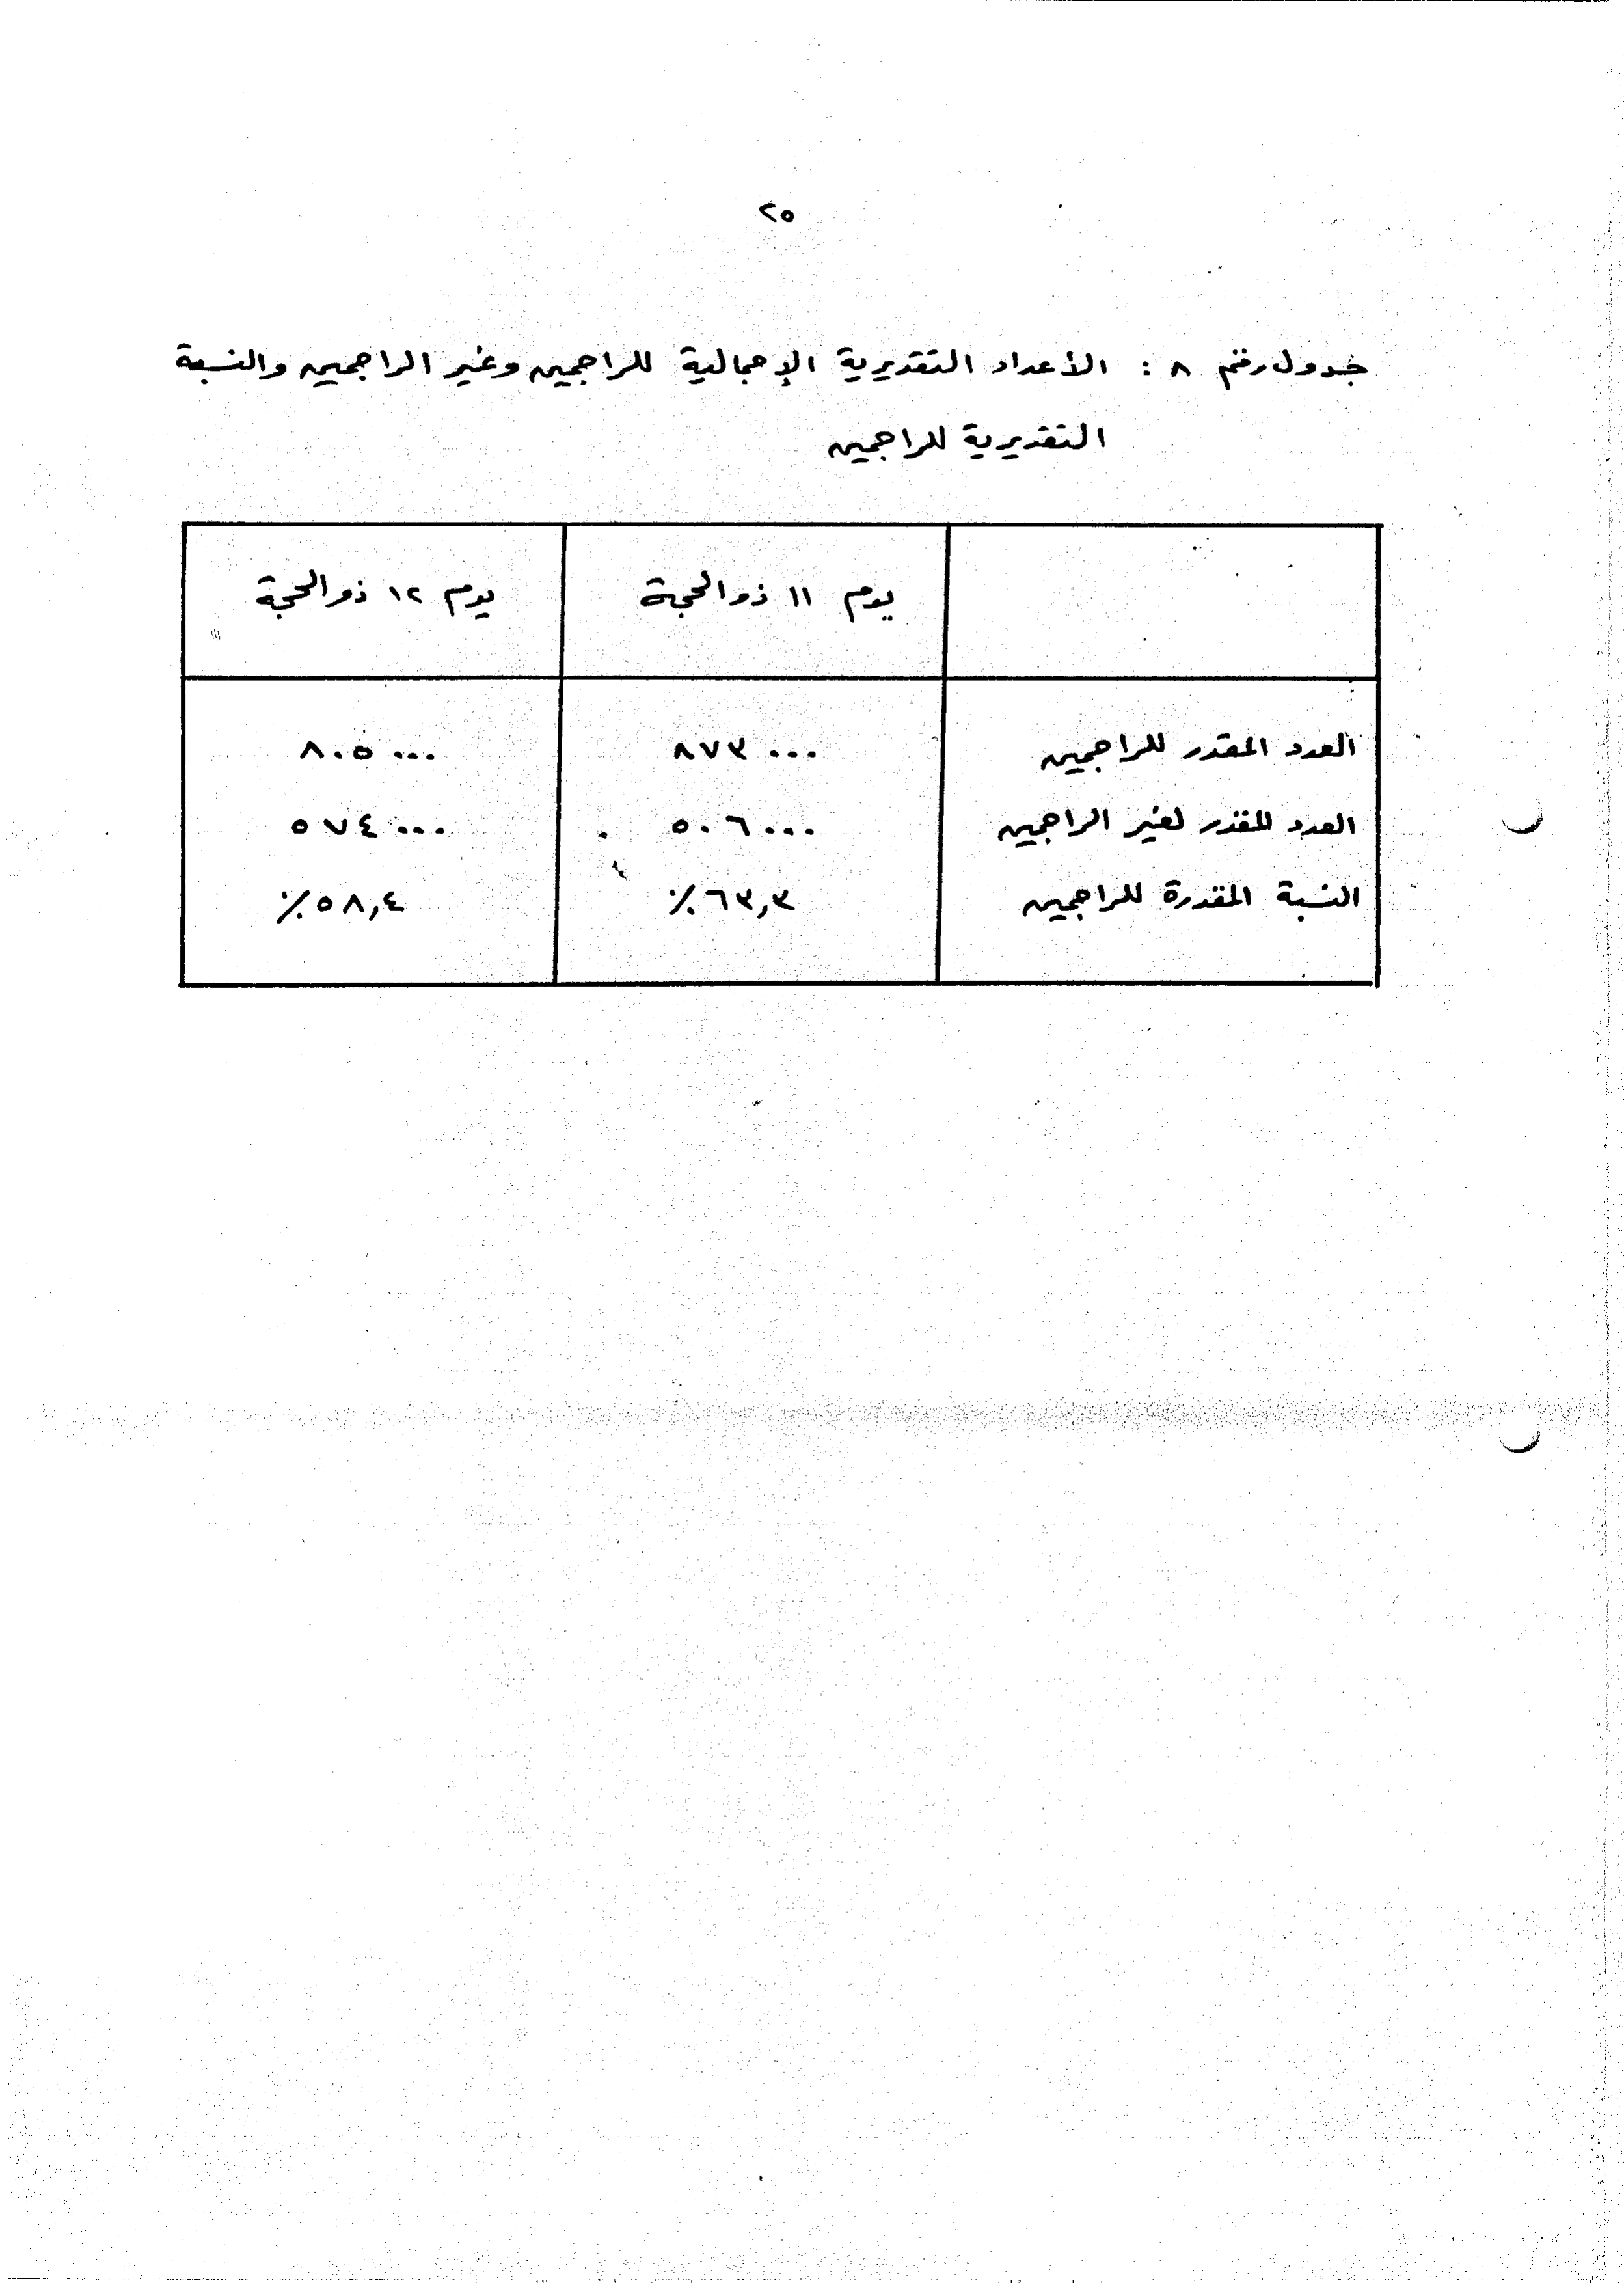 ٢٥
جدول رقم ٨ : الأعداد التقديرية الإجمالية للراجمين وغير الراجمين والنسبة
التقديرية للراجمين
يوم ١١ ذو الحجة يوم ١٢ ذو الحجة
العدد المقدر للراجمين ٨٧٣٠٠٠ ٨٠٥٠٠٠
العدد المقدر لغير الراجمين ٥٠٦٠٠٠ ٥٧٤٠٠٠
النسبة المقدرة للراجمين ٦٣,٣٪ ٥٨,٤٪